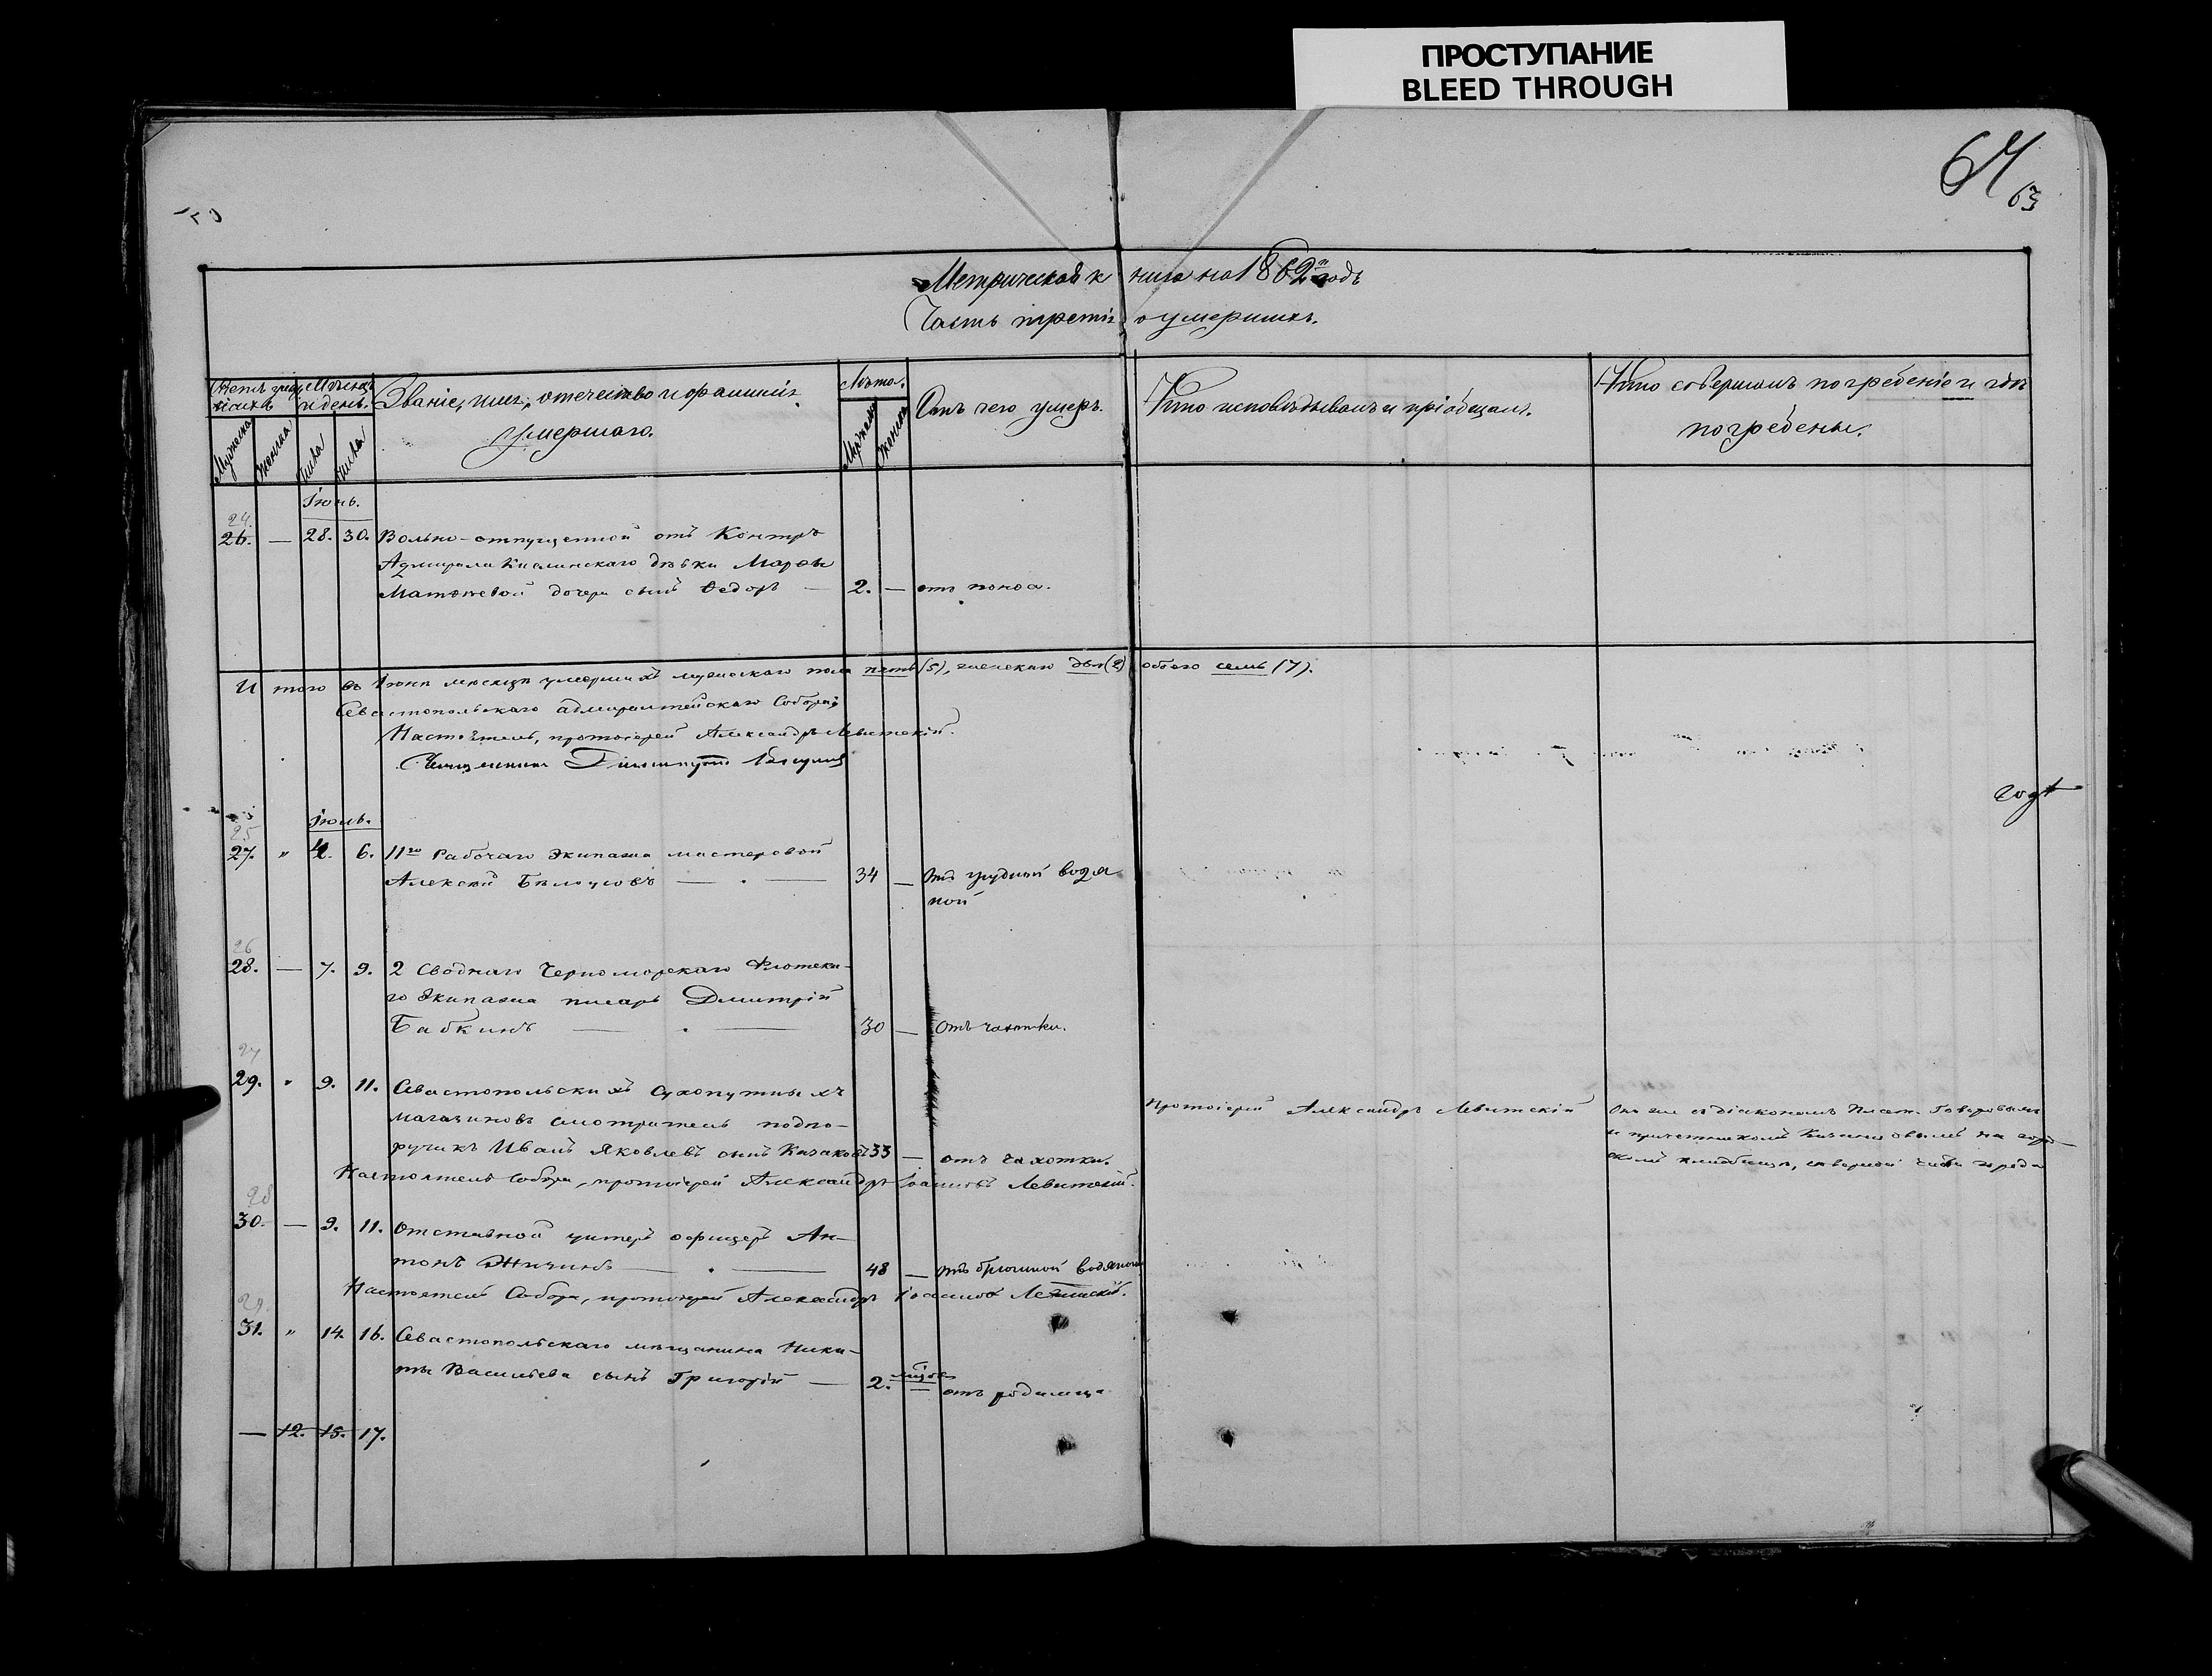 ПРОСТУПАНИЕ
BLEED THROUGH
64
63
Метрическая книга на 1862й годъ
Часть третія о умершихъ.
Мѣсяцъ и день.
Званіе, имя, отечество и фамилія умершаго.
Лѣта.
Отъ чего умеръ.
Кто исповѣдывалъ и пріобщалъ.
Кто совершилъ погребеніе и гдѣ
погребены.
Мужеска
Женска
Мужеска
Женска
Іюнь.
24.
26. — 28. 30. Вольно-отпущенной отъ Контръ
Адмирала Кислинскаго дѣвки Марѳы
Матвѣевой дочери сынъ Ѳедоръ — 2. — отъ поноса.
И того въ Іюнѣ мѣсяцѣ умершихъ мужескаго пола пять (5), женскаго два (2) обоего семь (7).
Севастопольскаго адмиралтейскаго Собора
Настоятель, протоіерей Александръ Левитскій.
Іюль.
25
27. " 4. 6. 11го Рабочаго Экипажа мастеровой
Алексѣй Бѣлоусовъ — 34 — отъ грудной водя
ной
26
28. — 7. 9. 2 Своднаго Черноморскаго Флотска-
го Экипажа писарь Дмитрій
Бабкинъ — 30 — отъ чахотки.
27
29. " 9. 11. Севастопольскихъ Сухопутныхъ
магазиновъ смотритель подпо-
ручикъ Иванъ Яковлевъ сынъ Казаковъ 33 — отъ чахотки.
Протоіерей Александръ Левитскій
Онъ же съ діакономъ
и причетникомъ на город-
скомъ кладбищѣ, сѣверной части города
Настоятель Собора, протоіерей Александръ Іоанновъ Левитскій.
28
30. — 9. 11. Отставной унтеръ офицеръ Ан-
тонъ — 48 — отъ брюшной водяной
Настоятель Собора, протоіерей Александръ Іоанновъ Левитскій.
29.
31. " 14. 16. Севастопольскаго мѣщанина Ники-
ты Васильева сынъ Григорій — 2. мѣсяц. — отъ родимца
— 12. 15. 17.